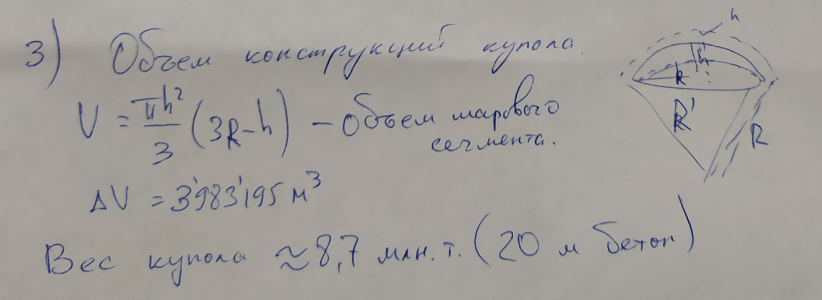 3) Объем конструкций купола.
V = πh²/3 (3R-h) – Объем шарового
сегмента.
ΔV = 3'983'195 м³
Вес купола ≈ 8,7 млн.т. (20 м бетон)
h
h'
R
R'
R